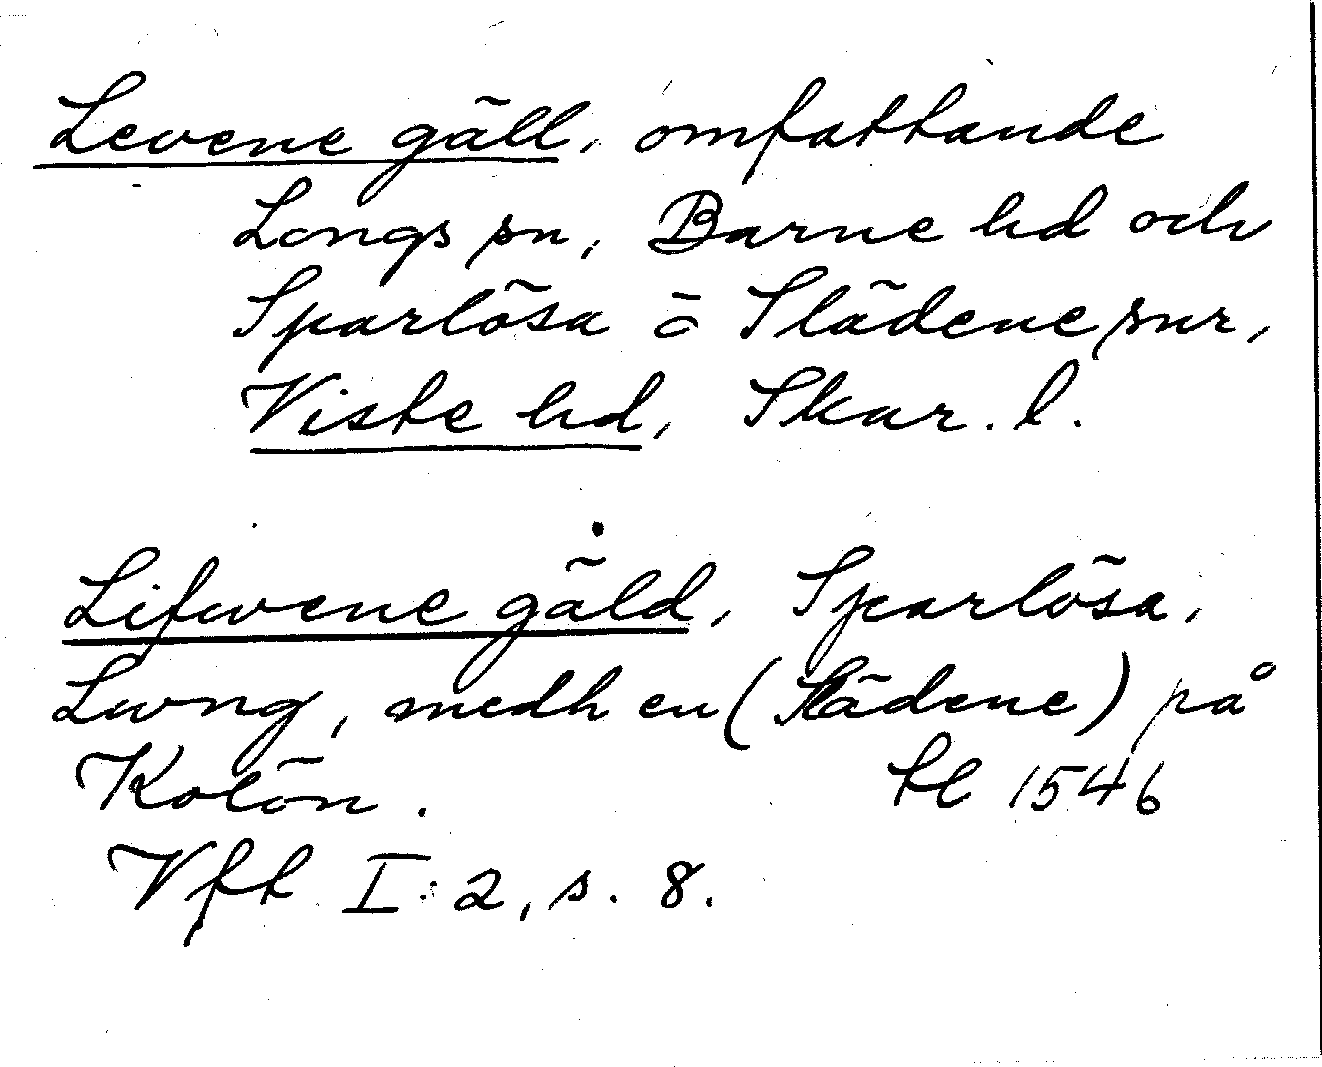 Levene gäll, omfattande
Longs sn, Barne hd och
Sparlösa o Slädene snr,
Viste hd, Skar. l.
Lifwene gäld, Sparlösa,
Lwng, medh en (Slädene) på
Kolön. tl 1546
Vft I:2, s. 8.